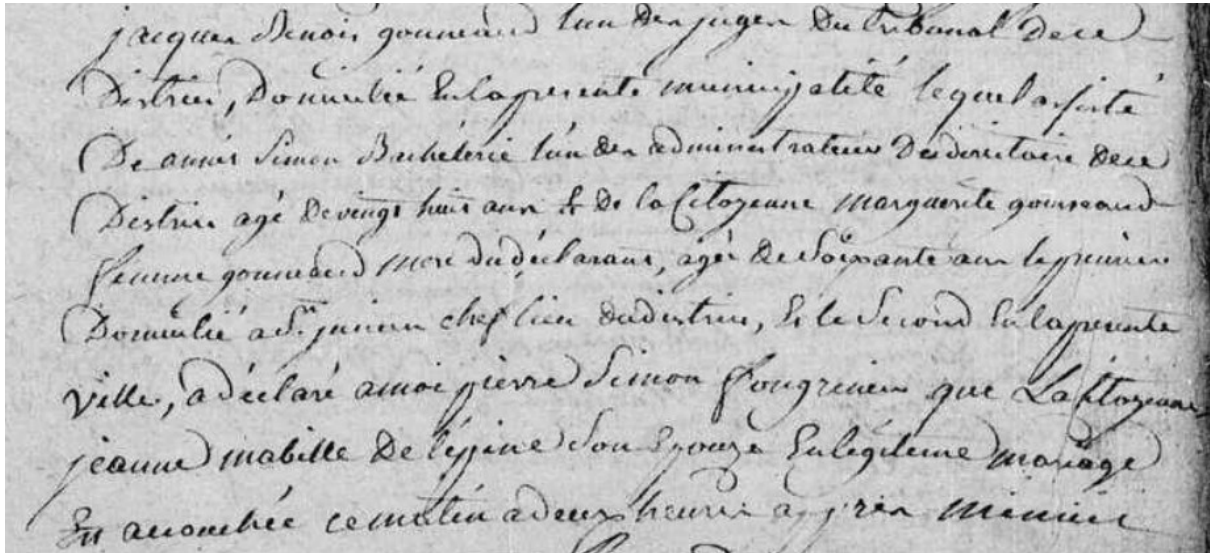 jacques Benois gouneaud l'un des juges du tribunal de ce
District, Domicilié En la presente municipalité lequel assisté
De annés Simon Bachelerie l'un des administrateurs Du directoire de ce
District agé de vengt huit ans & De la Citoyenne marguerite gouneaud
femme gouneaud mere du déclarant, agée de Soixante ans le premier
Domicilié a St junien chef lieu du district, Et le Second En la presente
ville, a déclaré a moi pierre Simon que La Citoyenne
jeanne mabille De lépine Son Epouze En légiteme mariage
Est accouchée ce matin a deux heures apres minuit